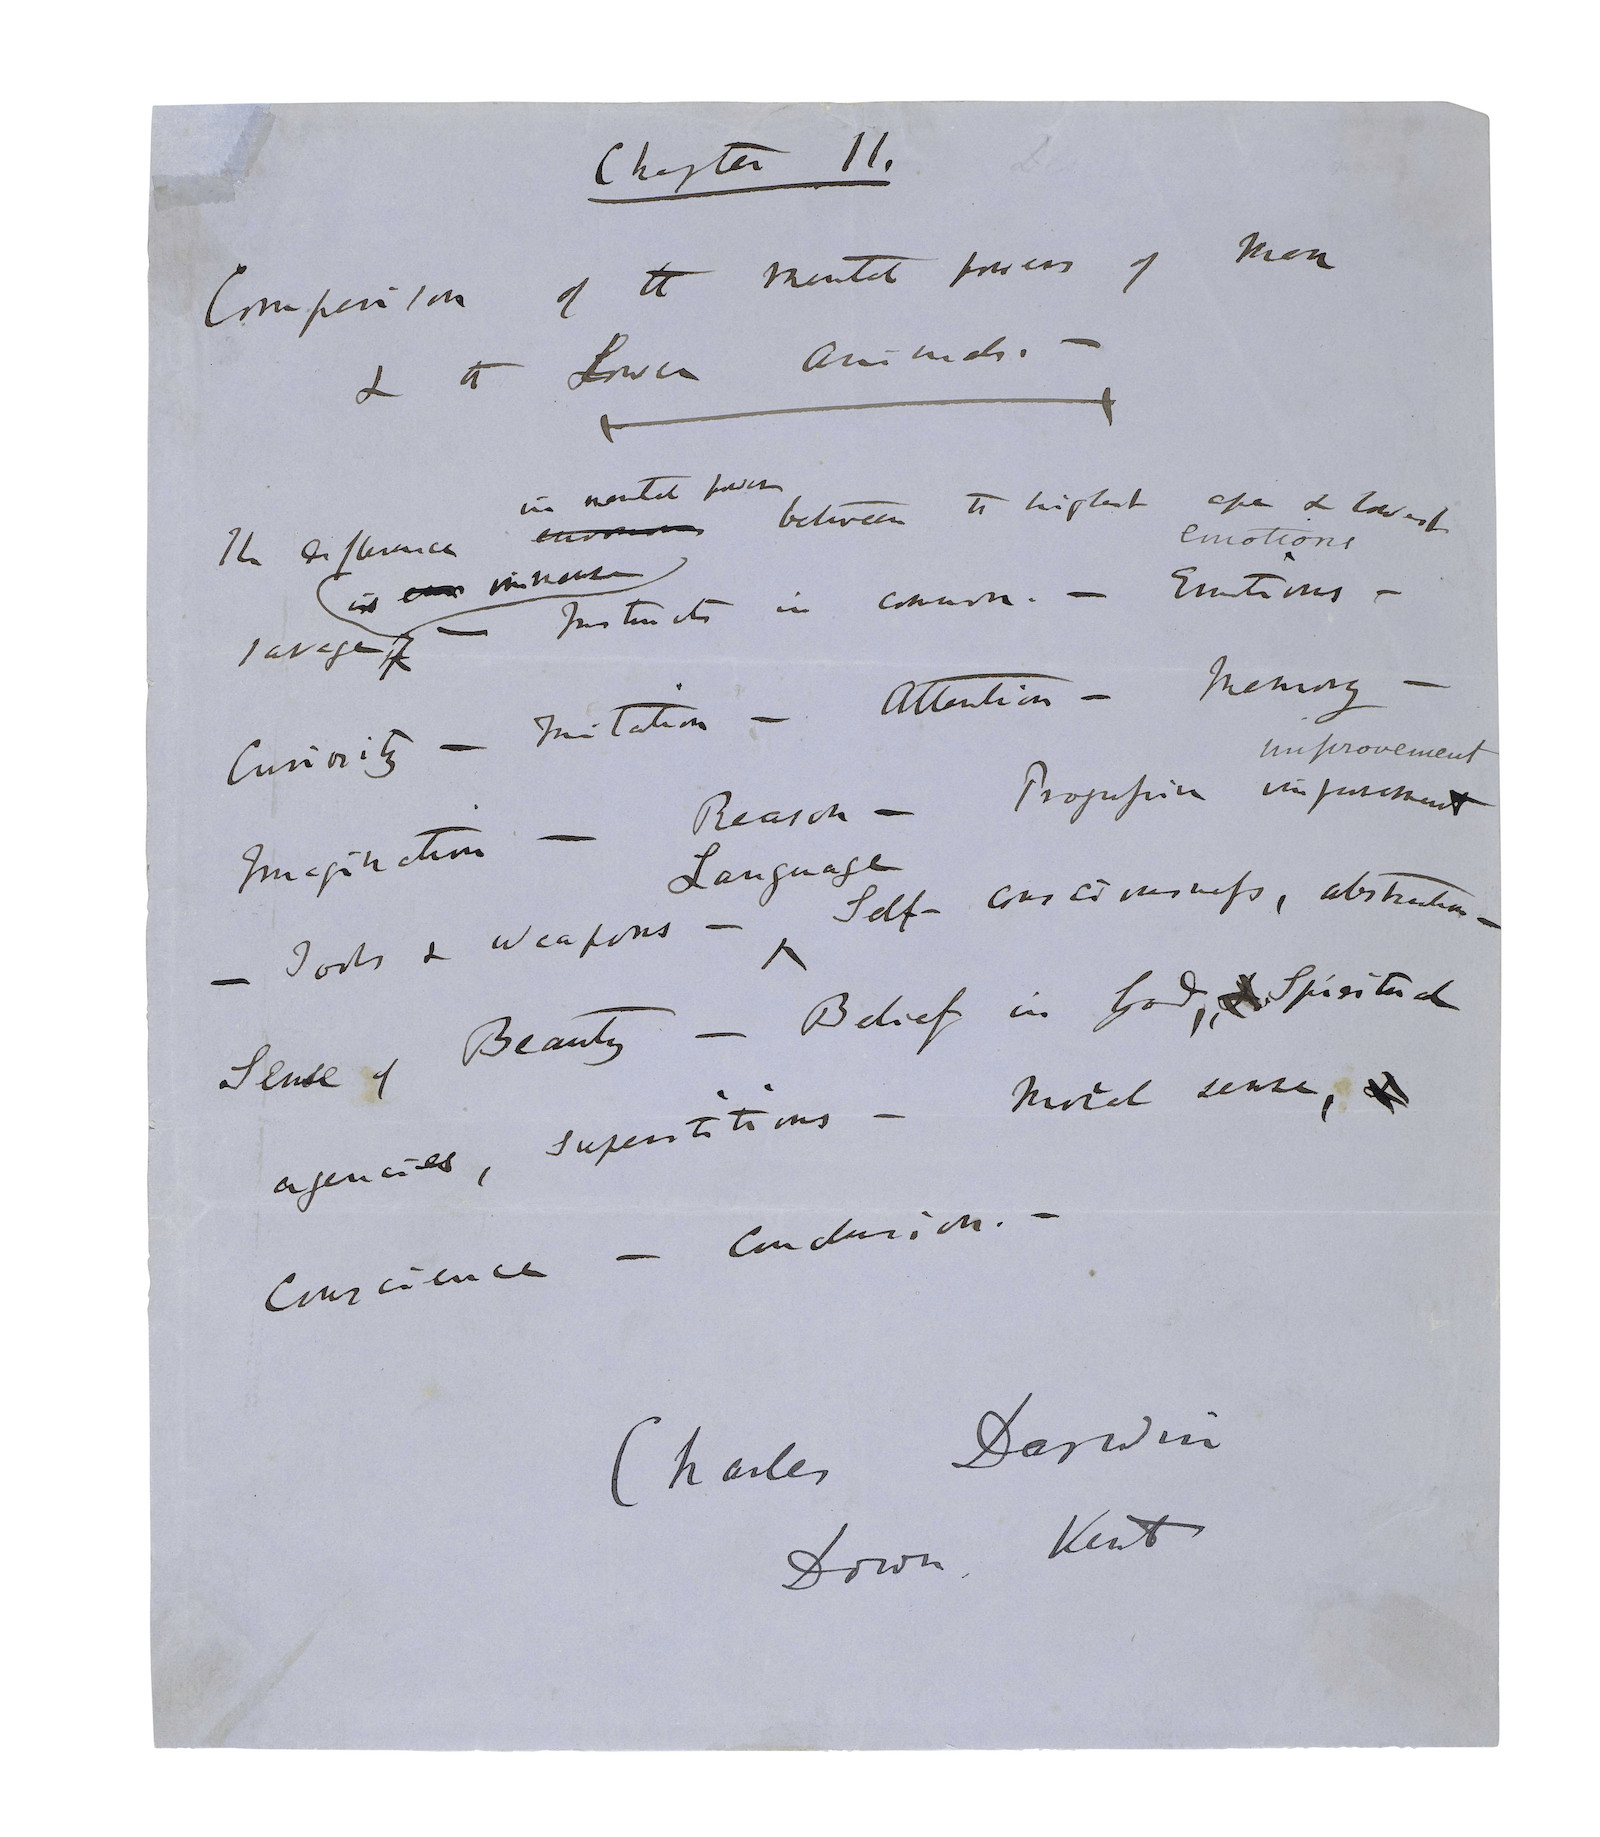 Chapter II.
Comparison of the mental powers of Man
& the Lower Animals. —
in mental power
The difference enormous between the highest ape & lowest
emotions
is immense
savage, — Instincts in common. — Emotions —
Curiosity — Imitation — Attention — Memory —
improvement
Imagination — Reason — Progressive improvement
Language
— Tools & weapons — Self-consciousness, abstraction —
Sense of Beauty — Belief in God, Spiritual
agencies, superstitions — Moral sense,
Conscience — Conclusion. —
Charles Darwin
Down. Kent